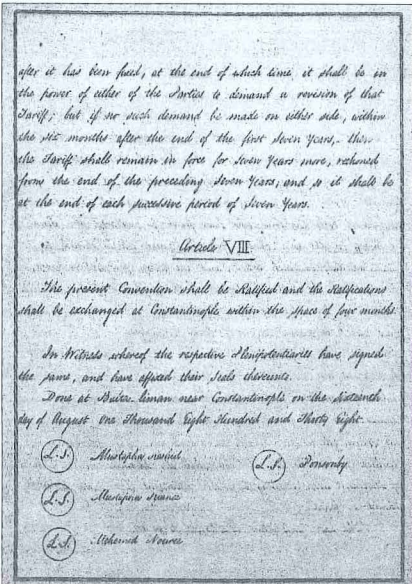 after it has been fixed, at the end of which time, it shall be in
the power of either of the Parties to demand a revision of that
Tariff; but if no such demand be made on either side, within
the six months after the end of the first seven Years, then
the Tariff shall remain in force for seven Years more, reckoned
from the end of the preceding Seven Years; and so it shall be
at the end of each successive period of Seven Years.
Article VIII.
The present Convention shall be Ratified and the Ratifications
shall be exchanged at Constantinople within the space of four months.
In Witness whereof the respective Plenipotentiaries have signed
the same, and have affixed their Seals thereunto.
Done at Balta-liman near Constantinople on the sixteenth
day of August One Thousand Eight Hundred and Thirty Eight
L.S. Mustapha L.S. Ponsonby
L.S. Mustapha
L.S. Mehemed Nouree